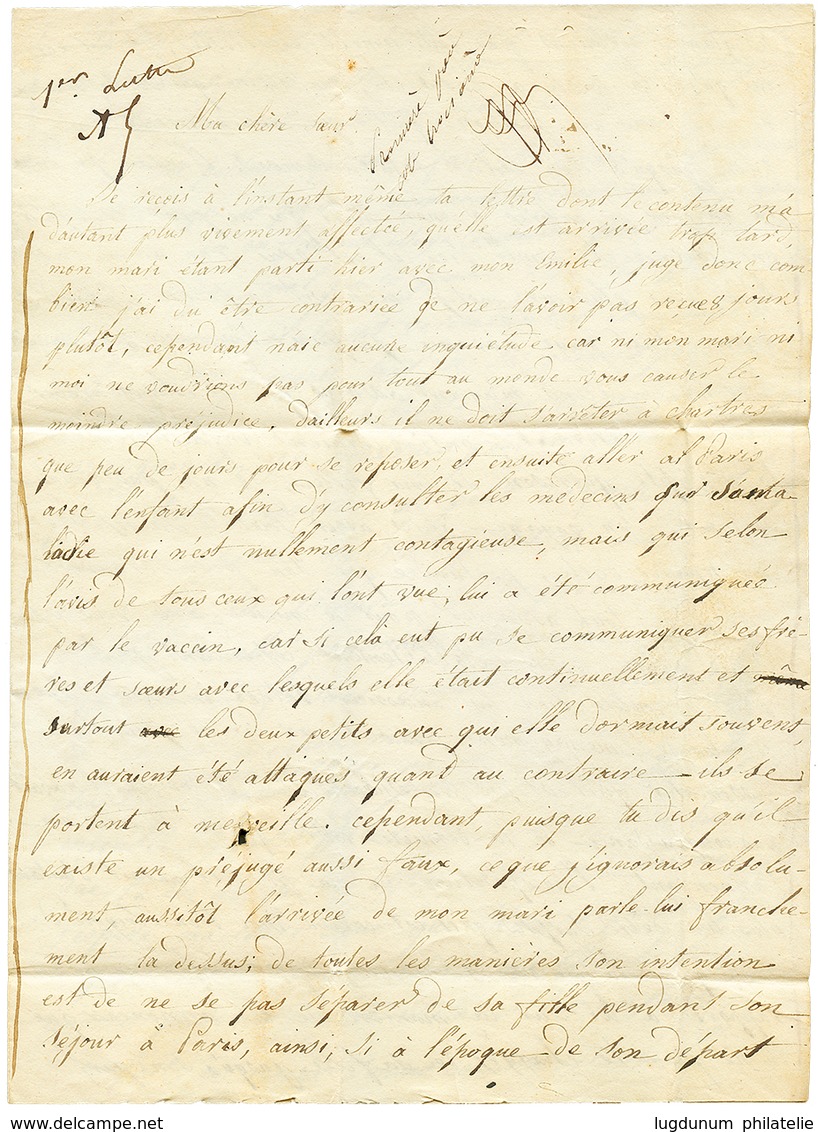 1er Lettre
Ma chère Sœur
Je reçois à l'instant même ta lettre dont le contenu m'a
d'autant plus vivement affectée, qu'elle est arrivée trop tard,
mon mari étant parti hier avec mon Emilie, juge donc com-
bien j'ai du être contrariée de ne l'avoir pas reçue 8 jours
plutôt, cependant n'aie aucune inquiétude car ni mon mari ni
moi ne voudrions pas pour tout au monde vous causer le
moindre préjudice, d'ailleurs il ne doit s'arrêter à Chartres
que peu de jours pour se reposer, et ensuite aller à Paris
avec l'enfant afin d'y consulter les médecins sur sa ma-
ladie qui n'est nullement contagieuse, mais qui selon
l'avis de tous ceux qui l'ont vue, lui a été communiqueé
par le vaccin, car si celà eut pu se communiquer ses frè-
res et sœurs avec lesquels elle était continuellement et même
surtout avec les deux petits avec qui elle dormait souvent,
en auraient été attaqués quand au contraire ils se
portent à merveille. cependant, puisque tu dis qu'il
existe un préjugé aussi faux, ce que j'ignorais absolu-
ment, aussitôt l'arrivée de mon mari parle-lui franche-
ment la dessus; de toutes les manières son intention
est de ne se pas séparer de sa fille pendant son
séjour à Paris, ainsi, si à l'époque de son départ
www.delcampe.net
lugdunum philatelie